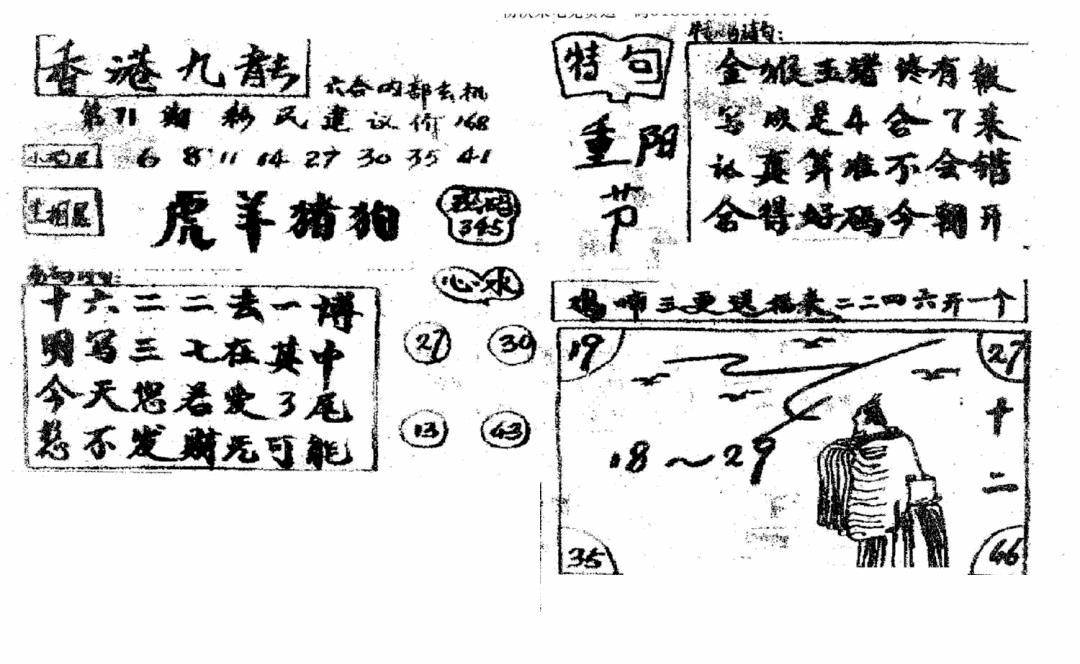 香港九龍
六合内部玄机
第71期 彩民建议价168
6 8 11 14 27 30 35 41
生相屋
虎羊猪狗
345
心水
十六二二去一博
明写三七在其中
今天您若爱了尾
愁不发财无可能
27 30
13 43
特句
重阳节
金猴玉猪终有报
写成是4合7来
认真算准不会错
合得好码今期开
鸡啼三更送福来二二四六开一个
19 27
18～29
十二
35 46